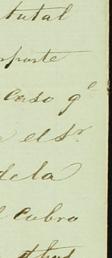 tutal
pporte
caso qe
el Sr.
de la
cobro